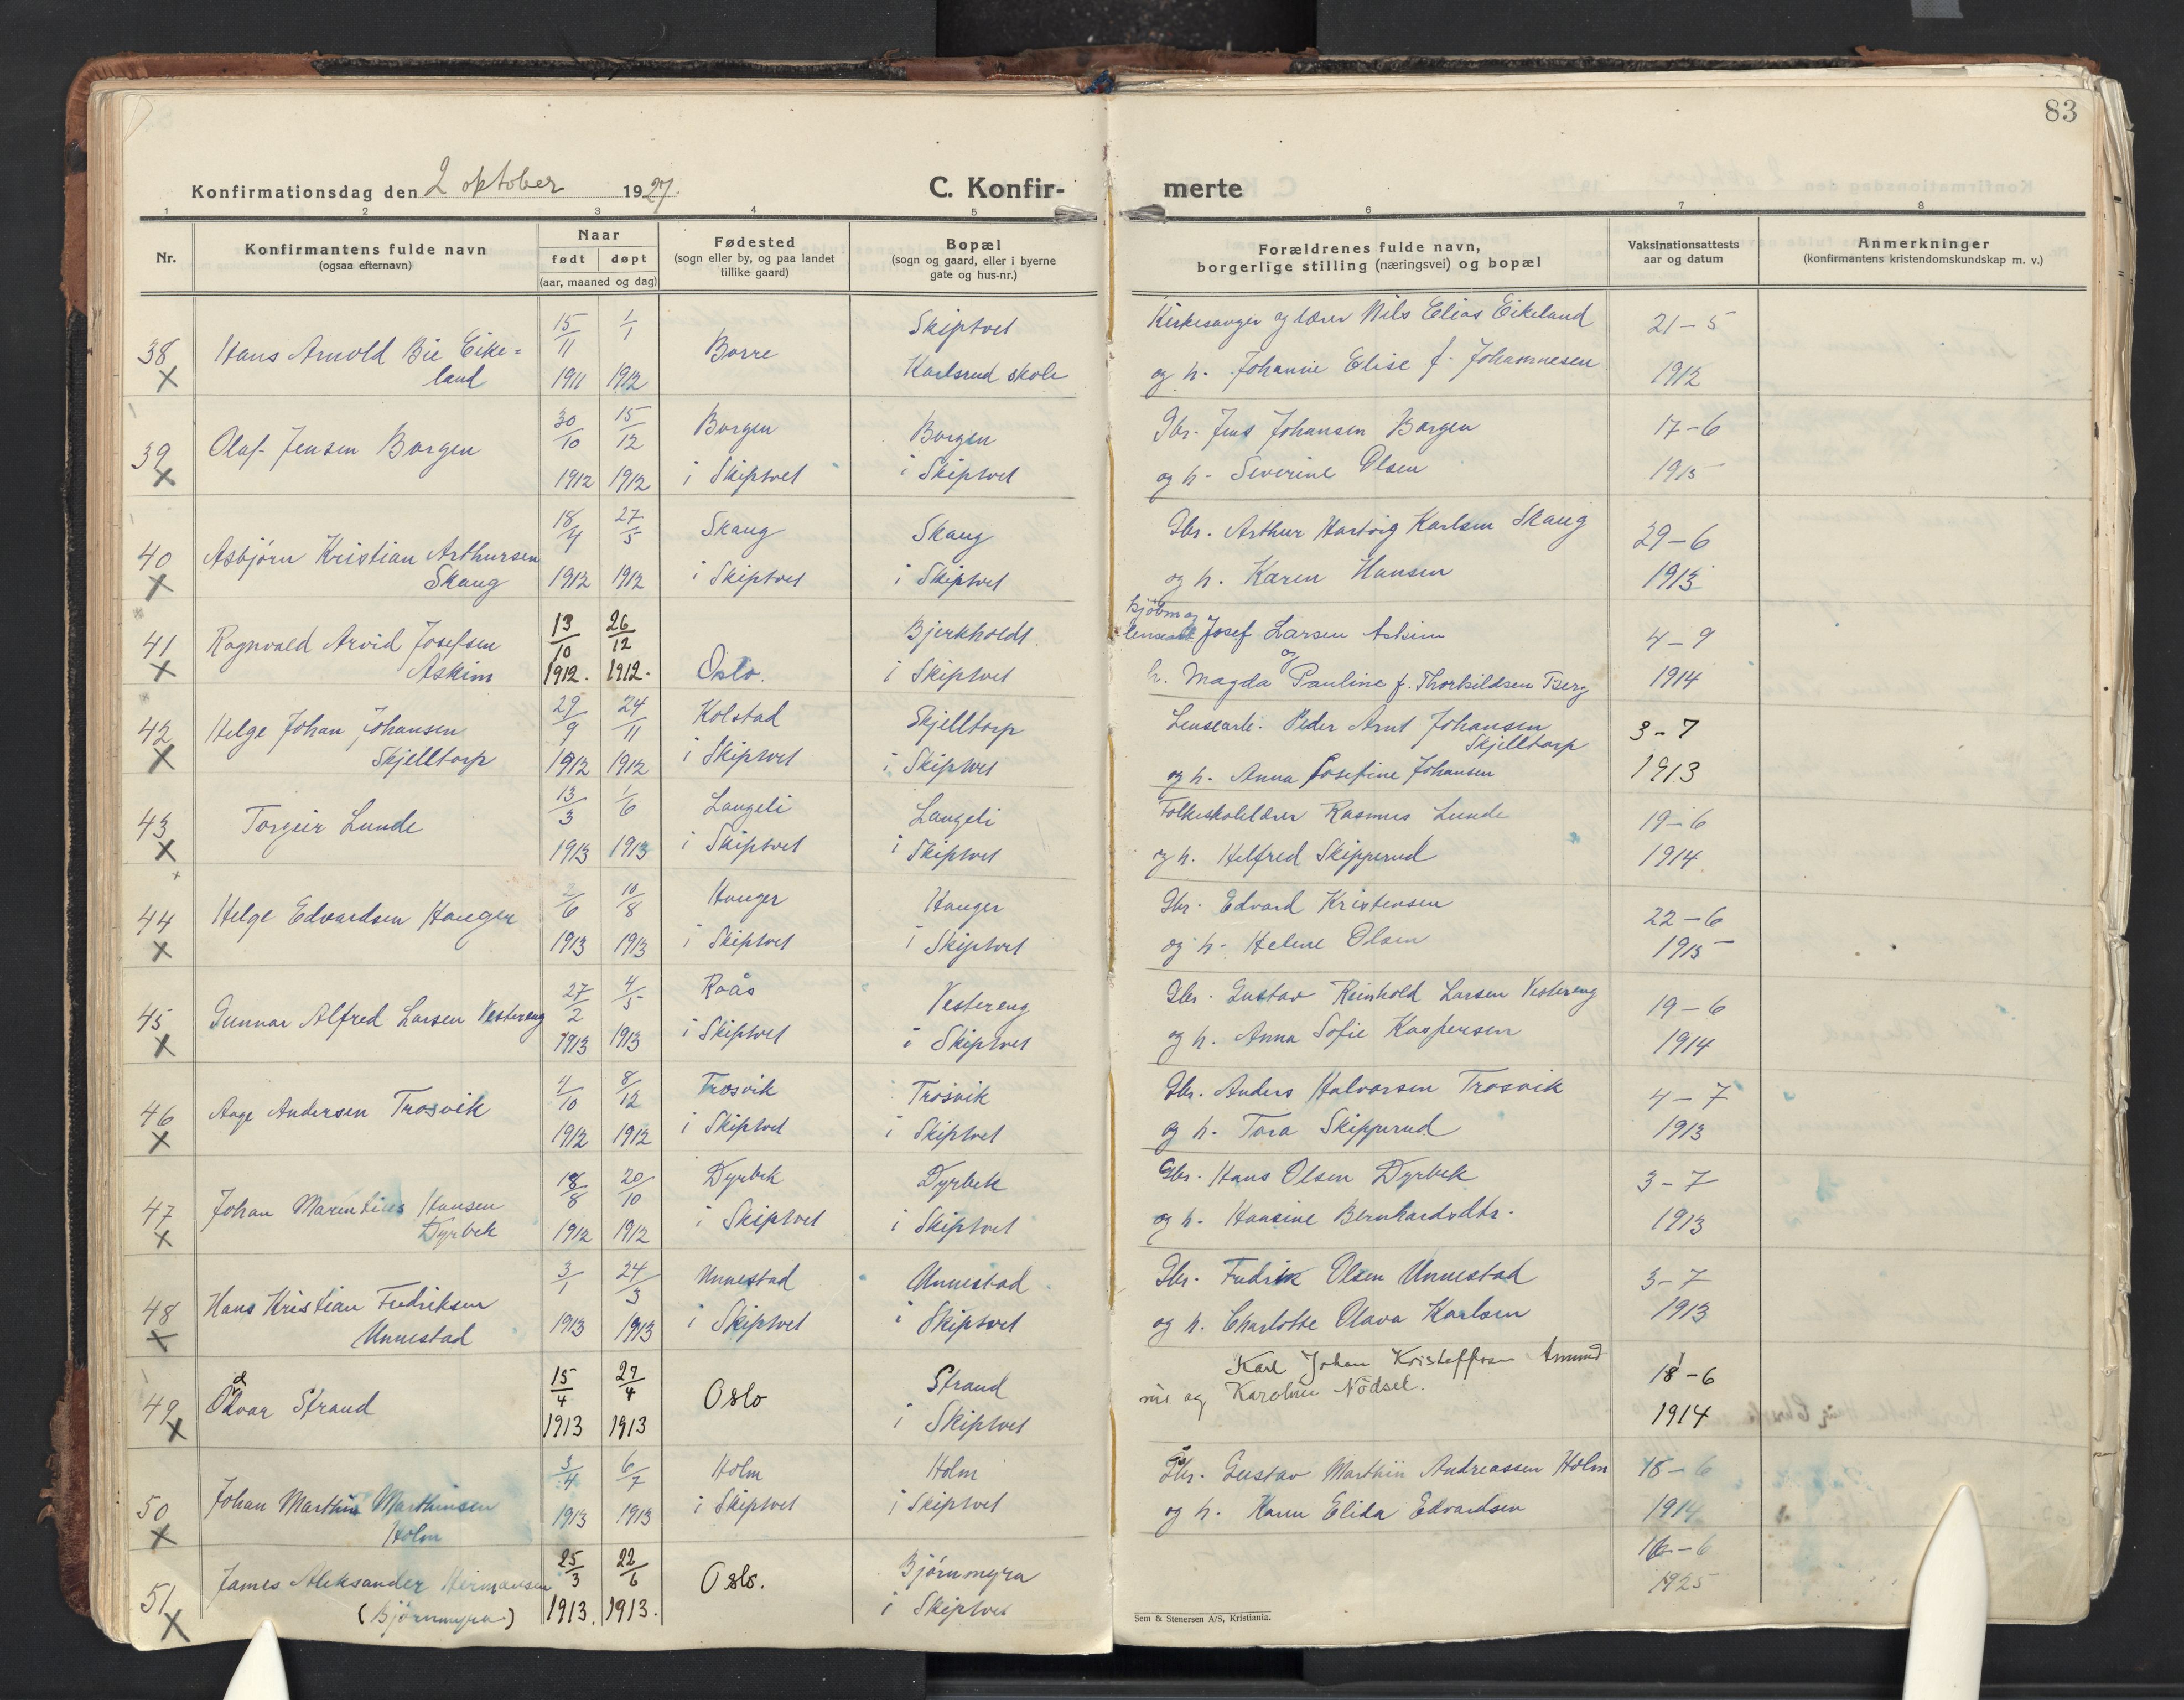 83
Konfirmationsdag den 2 oktober 1927.
C. Konfir-
merte
1 2 3 4 5 6 7 8
Nr.
Konfirmantens fulde navn
(ogsaa efternavn)
Naar
født døpt
(aar, maaned og dag)
Fødested
(sogn eller by, og paa landet
tillike gaard)
Bopæl
(sogn og gaard, eller i byerne
gate og hus-nr.)
Forældrenes fulde navn,
borgerlige stilling (næringsvei) og bopæl
Vaksinationsattests
aar og datum
Anmerkninger
(konfirmantens kristendomskundskap m. v.)
15/11 1/1 Skiptvet Kirkesanger og lærer Nils Elias Eikeland 21-5
38 Hans Arnold Bie Eike= Borre
X land 1911 1912 Karlsrud skole og h. Johanne Elise f. Johannesen 1912
30/10 15/12 Borgen Borgen Gbr. Jens Johansen Borgen 17-6
39 Olaf Jensen Borgen
X 1912 1912 i Skiptvet i Skiptvet og h. Severine Olsen 1915
18/4 27/5 Skaug Skaug Gbr. Arthur Hartvig Karlsen Skaug 29-6
40 Asbjørn Kristian Arthursen
X Skaug 1912 1912 i Skiptvet i Skiptvet og h. Karen Hansen 1913
41 Ragnvald Arvid Josefsen 13/10 26/12 Bjerkholdt Josef Larsen Askim 4-9
X Askim 1912. 1912. Oslo. i Skiptvet og h. Magda Pauline f. Thorkildsen Berg 1914
42 Helge Johan Johansen 29/9 24/11 Kolstad Skjelltorp Lensearb. Peder Arnt Johansen Skjelltorp 3-7
X Skjelltorp 1912 1912 i Skiptvet i Skiptvet og h. Anna Josefine Johansen 1913
43 Torgeir Lunde 13/3 1/6 Langeli Langeli Folkeskolelærer Rasmus Lunde 19-6
X 1913 1913 i Skiptvet i Skiptvet og h. Helfred Skipperud 1914
44 Helge Edvardsen Hauger 2/6 10/8 Hauger Hauger Gbr. Edvard Kristensen 22-6
X 1913 1913 i Skiptvet i Skiptvet og h. Helene Olsen 1915
45 Gunnar Alfred Larsen Vestereng 27/2 4/5 Roås Vestereng Gbr. Gustav Reinhold Larsen Vestereng 19-6
X 1913 1913 i Skiptvet i Skiptvet og h. Anna Sofie Kaspersen 1914
46 Aage Andersen Trosvik 4/10 8/12 Trosvik Trosvik Gbr. Anders Halvorsen Trosvik 4-7
X 1912 1912 i Skiptvet i Skiptvet og h. Tora Skipperud 1913
47 Johan Marentius Hansen 18/8 20/10 Dyrbek Dyrbek Gbr. Hans Olsen Dyrbek 3-7
X Dyrbek 1912 1912 i Skiptvet i Skiptvet og h. Hansine Bernhardsdtr. 1913
48 Hans Kristian Fredriksen 3/1 24/3 Unnestad Unnestad Gbr. Fredrik Olsen Unnestad 3-7
X Unnestad 1913 1913 i Skiptvet i Skiptvet og h. Charlotte Olava Karlsen 1913
49 Odvar Strand 15/4 27/4 Oslo Strand Karl Johan Kristoffersen 18-6
X 1913 1913 i Skiptvet og Karoline Nödset. 1914
50 Johan Marthin Marthinsen 3/4 6/7 Holm Holm Gbr. Gustav Marthin Andreassen Holm 18-6
X Holm 1913 1913 i Skiptvet i Skiptvet og h. Karen Elida Edvardsen 1914
51 James Aleksander Hermansen 25/3 22/6 Oslo. Bjørnmyra 16-6
X (Bjørnmyra) 1913. 1913. i Skiptvet 1925
Sem & Stenersen A/S, Kristiania.